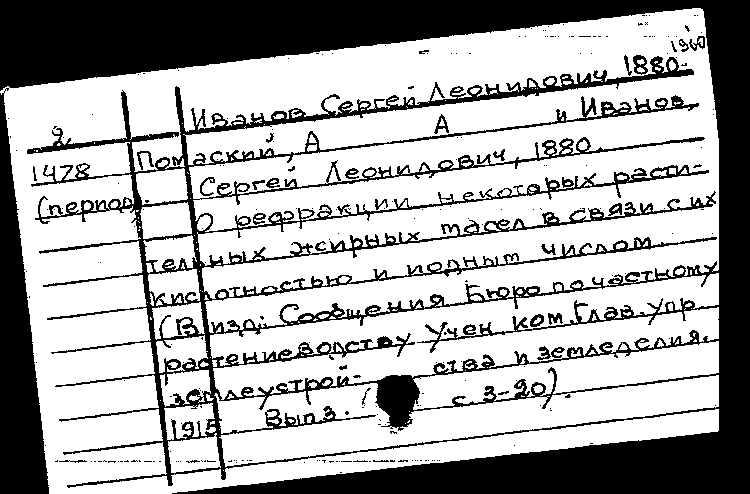 1960
Иванов Сергей Леонидович, 1880-
2
1478 Помаский, А А и Иванов,
(период). Сергей Леонидович, 1880.
О рефракции некоторых расти-
тельных жирных масел в связи с их
кислотностью и иодным числом.
(В изд.: Сообщения Бюро по частному
растениеводству Учен. ком. Глав. упр.
землеустрой- ства и земледелия.
1915. Вып. 3. с. 3-20).